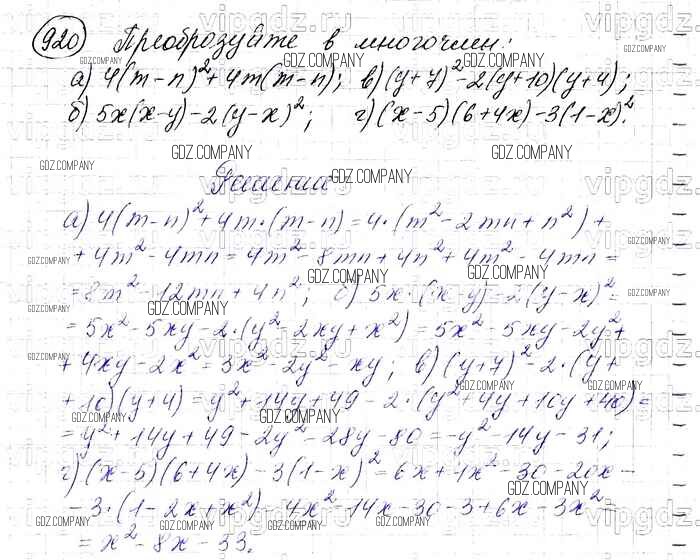 920 Преобразуйте в многочлен:
а) 4(m-n)²+4m(m-n); в)(y+7)²-2(y+10)(y+4);
б) 5x(x-y)-2(y-x)²; г)(x-5)(6+4x)-3(1-x)².
Решение
а) 4(m-n)²+4m·(m-n)=4·(m²-2mn+n²)+
+4m²-4mn=4m²-8mn+4n²+4m²-4mn=
=8m²-12mn+4n²; б) 5x·(x-y)-2·(y-x)²=
=5x²-5xy-2·(y²-2xy+x²)=5x²-5xy-2y²+
+4xy-2x²=3x²-2y²-xy; в)(y+7)²-2·(y+
+10)(y+4)=y²+14y+49-2·(y²+4y+10y+40)=
=y²+14y+49-2y²-28y-80=-y²-14y-31;
г)(x-5)(6+4x)-3(1-x)²=6x+4x²-30-20x-
-3·(1-2x+x²)=4x²-14x-30-3+6x-3x²=
=x²-8x-33.
GDZ.COMPANY
vipgdz.ru